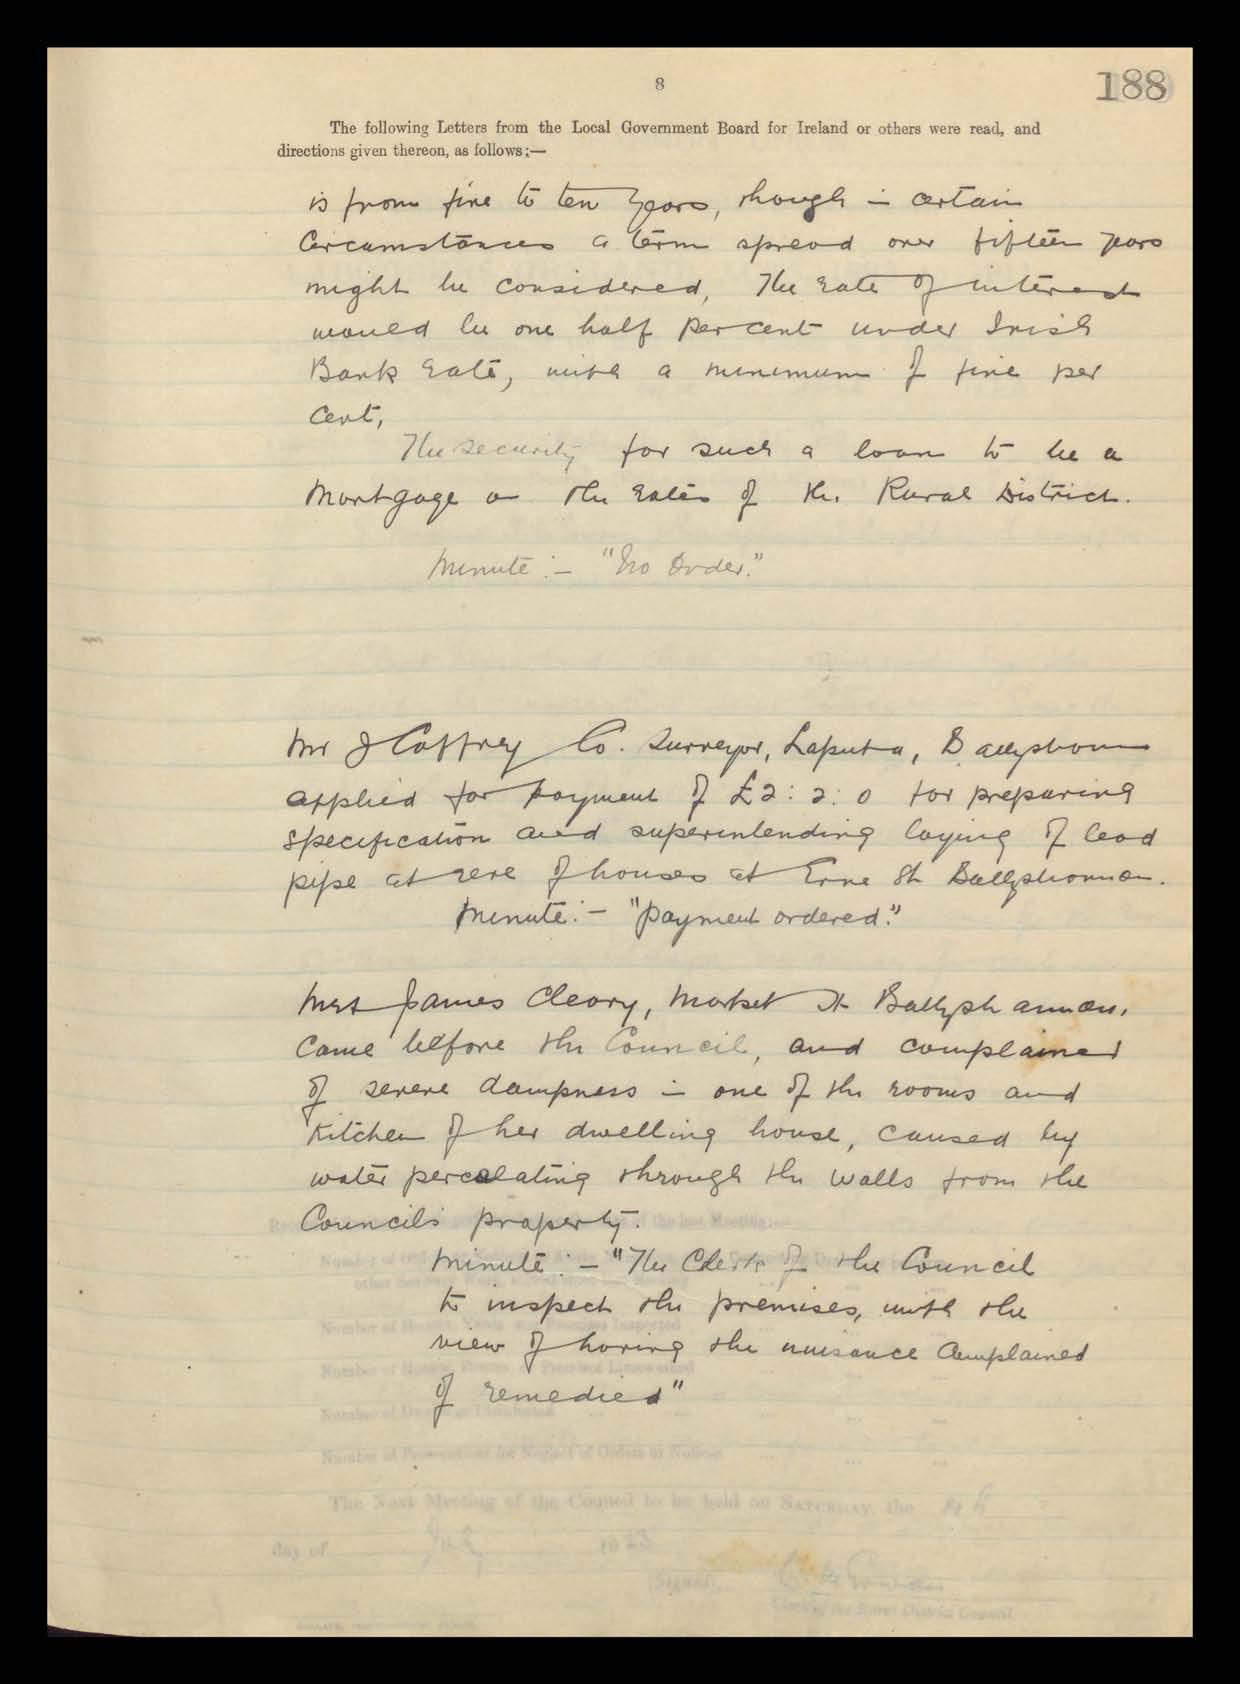 8
188
The following Letters from the Local Government Board for Ireland or others were read, and
directions given thereon, as follows;—
is from five to ten years, though in certain
Circumstances a term spread over fifteen years
might be considered, The rate of interest
would be one half per cent under Irish
Bank rate, with a minimum of five per
Cent,
The security for such a loan to be a
Mortgage on the rates of the Rural District.
Minute:- "No Order."
Mr J Caffrey Co. Surveyor, Laputa, Ballyshannon
applied for payment of £2:2:0 for preparing
Specification and superintending laying of lead
pipe at rere of houses at Erne St Ballyshannon.
Minute:- "Payment ordered."
Mrs James Cleary, Market St Ballyshannon.
Came before the Council, and complained
of severe dampness in one of the rooms and
Kitchen of her dwelling house, caused by
water percolating through the walls from the
Councils property.
Minute:- "The Clerk of the Council
to inspect the premises, with the
view of having the nuisance Complained
of remedied"
The Next Meeting of the Council to be held on SATURDAY, the
day of July 1923
(Signed),
Clerk of the Rural District Council